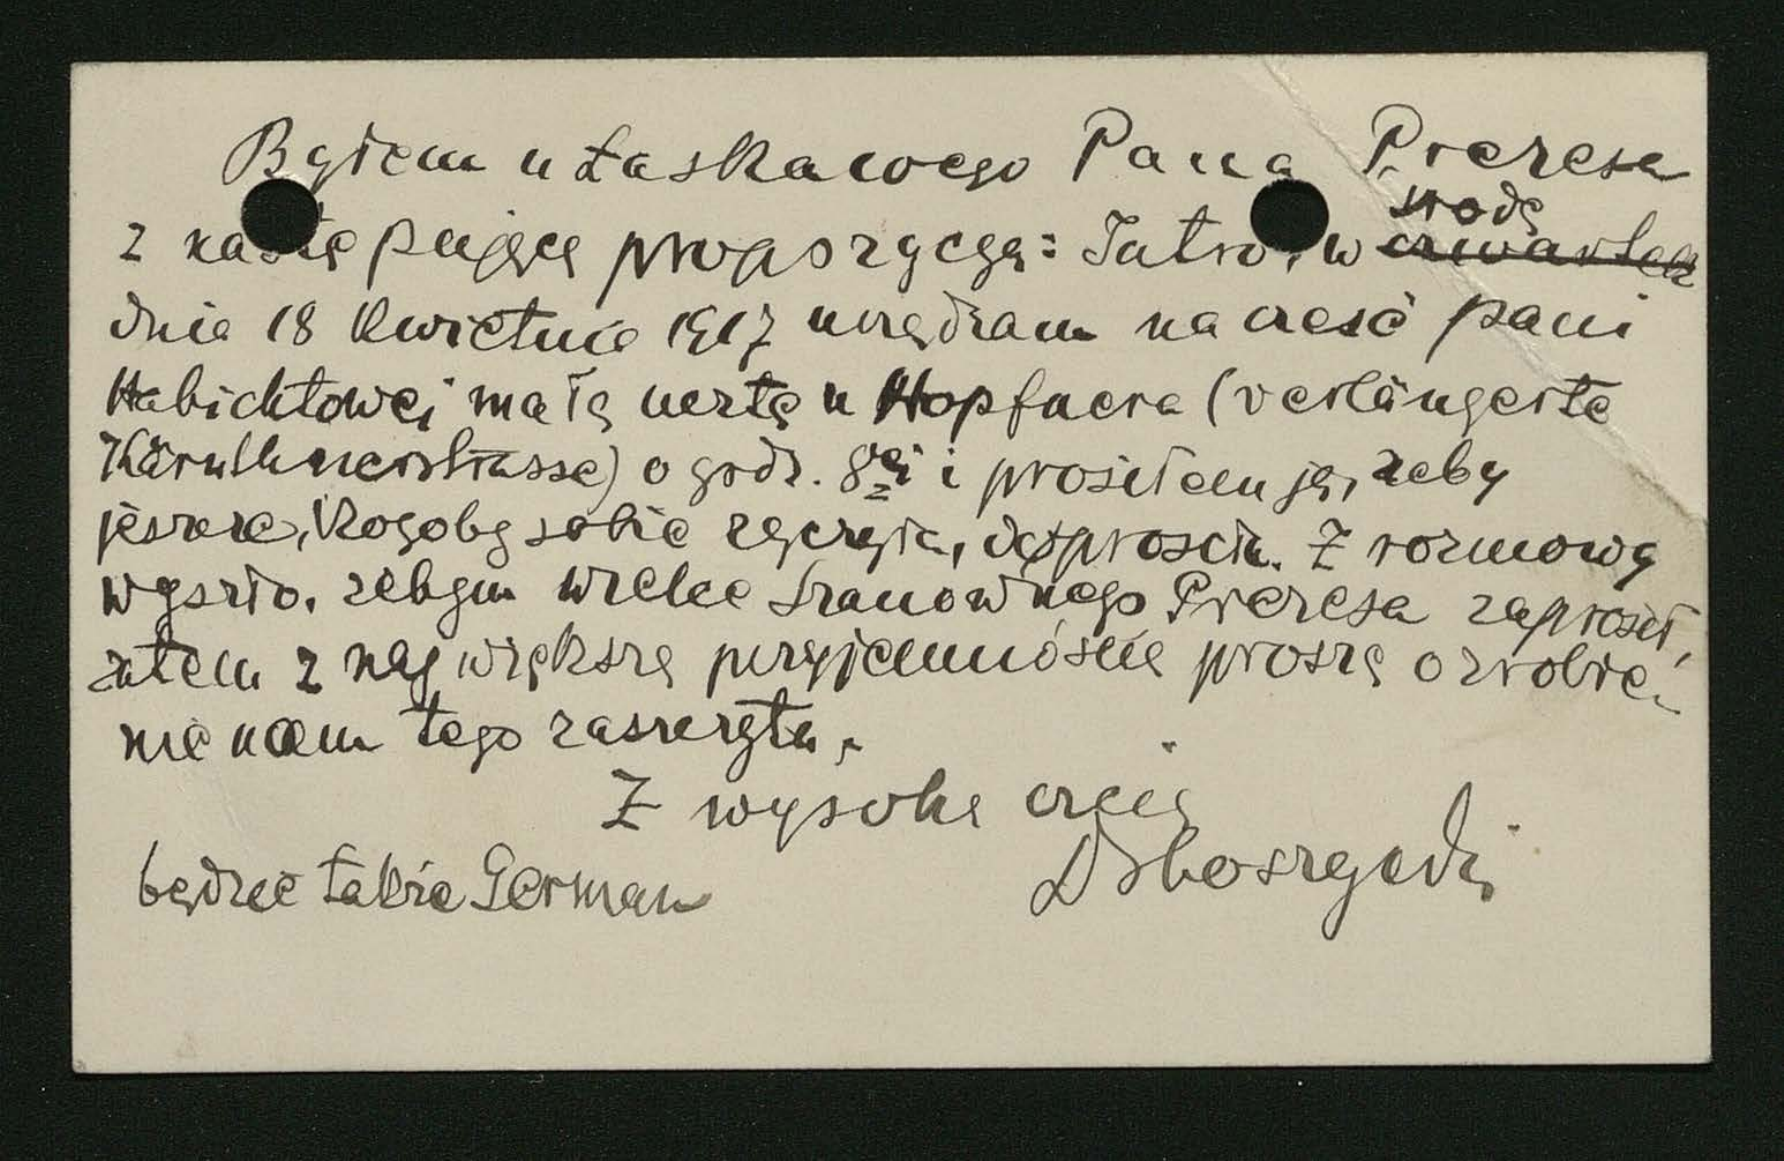 Byłem u Łaskawego Pana Prezesa
z następującą propozycyą: Jutro, w środę czwartek
dnia 18 kwietnia 1917 urządzam na cześć pani
Habichtowej małą ucztę u Hopfnera (verlängerte
Kärnthnerstrasse) o godz. 8ej i prosiłem ją, żeby
jeszcze, kogoby sobie życzyła, doprosiła. Z rozmowy
wyszło, żebym wielce Szanownego Prezesa zaprosił,
zatem z największą przyjemnością proszę o zrobie-
nie nam tego zaszczytu.
Z wysoką czcią
będzie także German